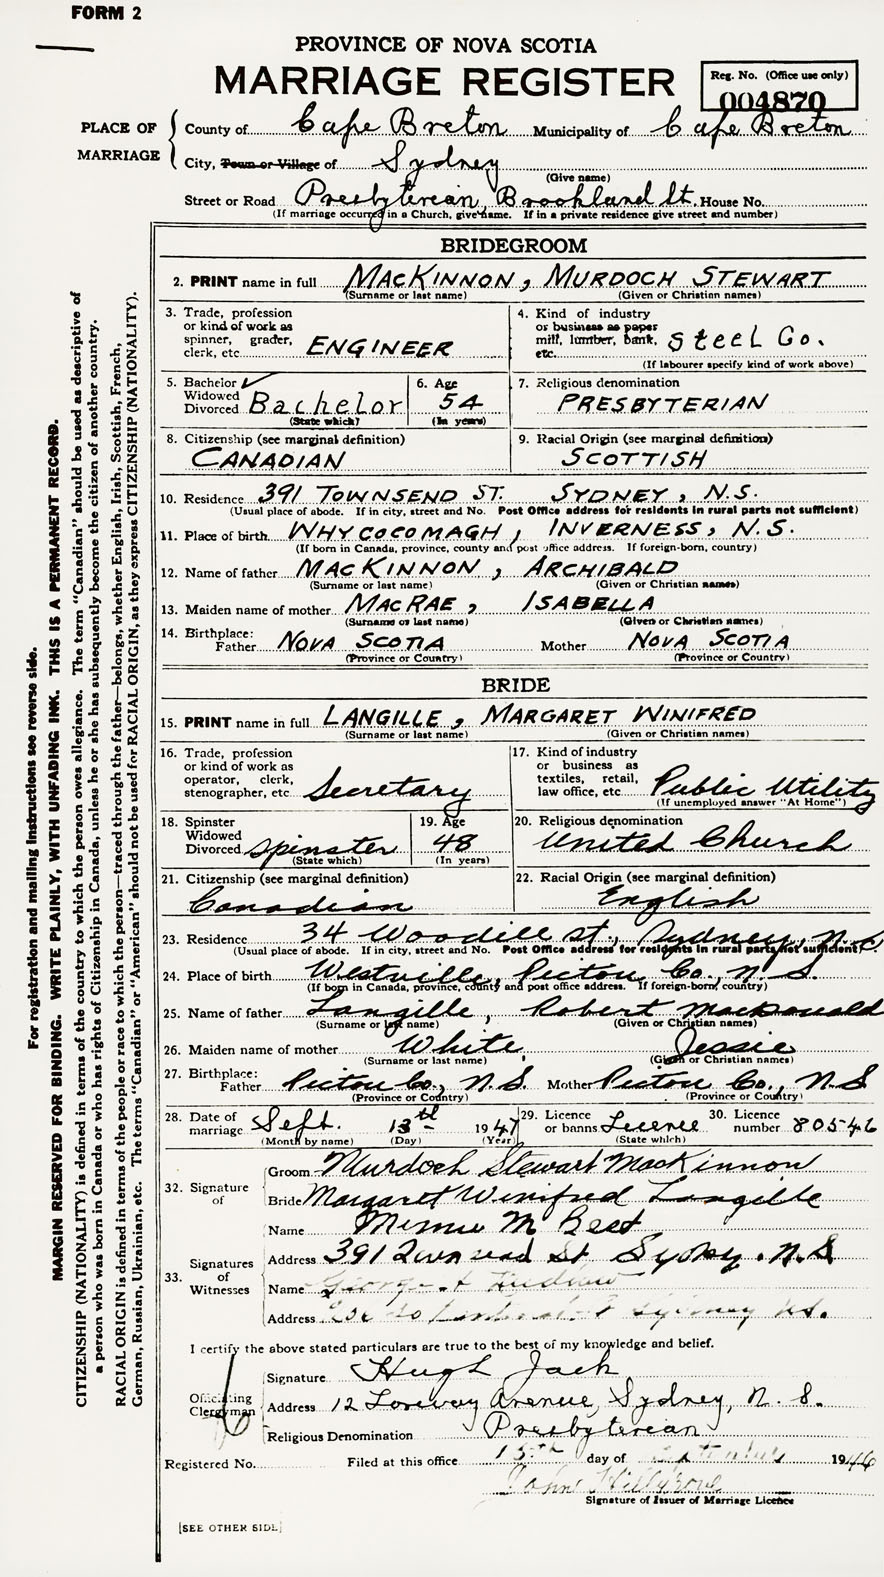 FORM 2
PROVINCE OF NOVA SCOTIA
MARRIAGE REGISTER
Reg. No. (Office use only)
004870
PLACE OF MARRIAGE
County of Cape Breton Municipality of Cape Breton
City, Town or Village of Sydney
(Give name)
Street or Road Presbyterian, Brookland St. House No.
(If marriage occurred in a Church, give name. If in a private residence give street and number)
BRIDEGROOM
2. PRINT name in full MACKINNON, MURDOCH STEWART
(Surname or last name) (Given or Christian names)
3. Trade, profession or kind of work as spinner, grader, clerk, etc. ENGINEER
4. Kind of industry or business as paper mill, lumber, bank, etc. Steel Co.
(If labourer specify kind of work above)
5. Bachelor ✓ Widowed Divorced Bachelor
(State which)
6. Age 54
(In years)
7. Religious denomination
PRESBYTERIAN
8. Citizenship (see marginal definition)
CANADIAN
9. Racial Origin (see marginal definition)
SCOTTISH
10. Residence 391 TOWNSEND ST. SYDNEY, N.S.
(Usual place of abode. If in city, street and No. Post Office address for residents in rural parts not sufficient)
11. Place of birth WHYCOCOMAGH, INVERNESS, N.S.
(If born in Canada, province, county and post office address. If foreign-born, country)
12. Name of father MACKINNON, ARCHIBALD
(Surname or last name) (Given or Christian names)
13. Maiden name of mother MACRAE, ISABELLA
(Surname or last name) (Given or Christian names)
14. Birthplace: Father NOVA SCOTIA Mother NOVA SCOTIA
(Province or Country) (Province or Country)
BRIDE
15. PRINT name in full LANGILLE, MARGARET WINIFRED
(Surname or last name) (Given or Christian names)
16. Trade, profession or kind of work as operator, clerk, stenographer, etc. Secretary
17. Kind of industry or business as textiles, retail, law office, etc. Public Utility
(If unemployed answer "At Home")
18. Spinster Widowed Divorced spinster
(State which)
19. Age 48
(In years)
20. Religious denomination
United Church
21. Citizenship (see marginal definition)
Canadian
22. Racial Origin (see marginal definition)
English
23. Residence 34 Woodill St., Sydney, N.S.
(Usual place of abode. If in city, street and No. Post Office address for residents in rural parts not sufficient)
24. Place of birth Westville, Pictou Co., N.S.
(If born in Canada, province, county and post office address. If foreign-born, country)
25. Name of father Langille, Robert MacDonald
(Surname or last name) (Given or Christian names)
26. Maiden name of mother White, Jessie
(Surname or last name) (Given or Christian names)
27. Birthplace: Father Pictou Co., N.S. Mother Pictou Co., N.S
(Province or Country) (Province or Country)
28. Date of marriage Sept. 13th 1947
(Month by name) (Day) (Year)
29. Licence or banns Licence
(State which)
30. Licence number 80546
32. Signature of
Groom Murdoch Stewart MacKinnon
Bride Margaret Winifred Langille
33. Signatures of Witnesses
Name Minnie M Best
Address 391 St Sydney. N.S
Name George
Address Sydney N.S.
I certify the above stated particulars are true to the best of my knowledge and belief.
Officiating Clergyman
Signature Hugh Jack
Address 12 Avenue, Sydney, N.S.
Religious Denomination Presbyterian
Registered No. Filed at this office 13th day of 1946
John
Signature of Issuer of Marriage Licence
[SEE OTHER SIDE]
For registration and mailing instructions see reverse side.
MARGIN RESERVED FOR BINDING. WRITE PLAINLY, WITH UNFADING INK. THIS IS A PERMANENT RECORD.
CITIZENSHIP (NATIONALITY) is defined in terms of the country to which the person owes allegiance. The term "Canadian" should be used as descriptive of
a person who was born in Canada or who has rights of Citizenship in Canada, unless he or she has subsequently become the citizen of another country.
RACIAL ORIGIN is defined in terms of the people or race to which the person—traced through the father—belongs, whether English, Irish, Scottish, French,
German, Russian, Ukrainian, etc. The terms "Canadian" or "American" should not be used for RACIAL ORIGIN, as they express CITIZENSHIP (NATIONALITY).